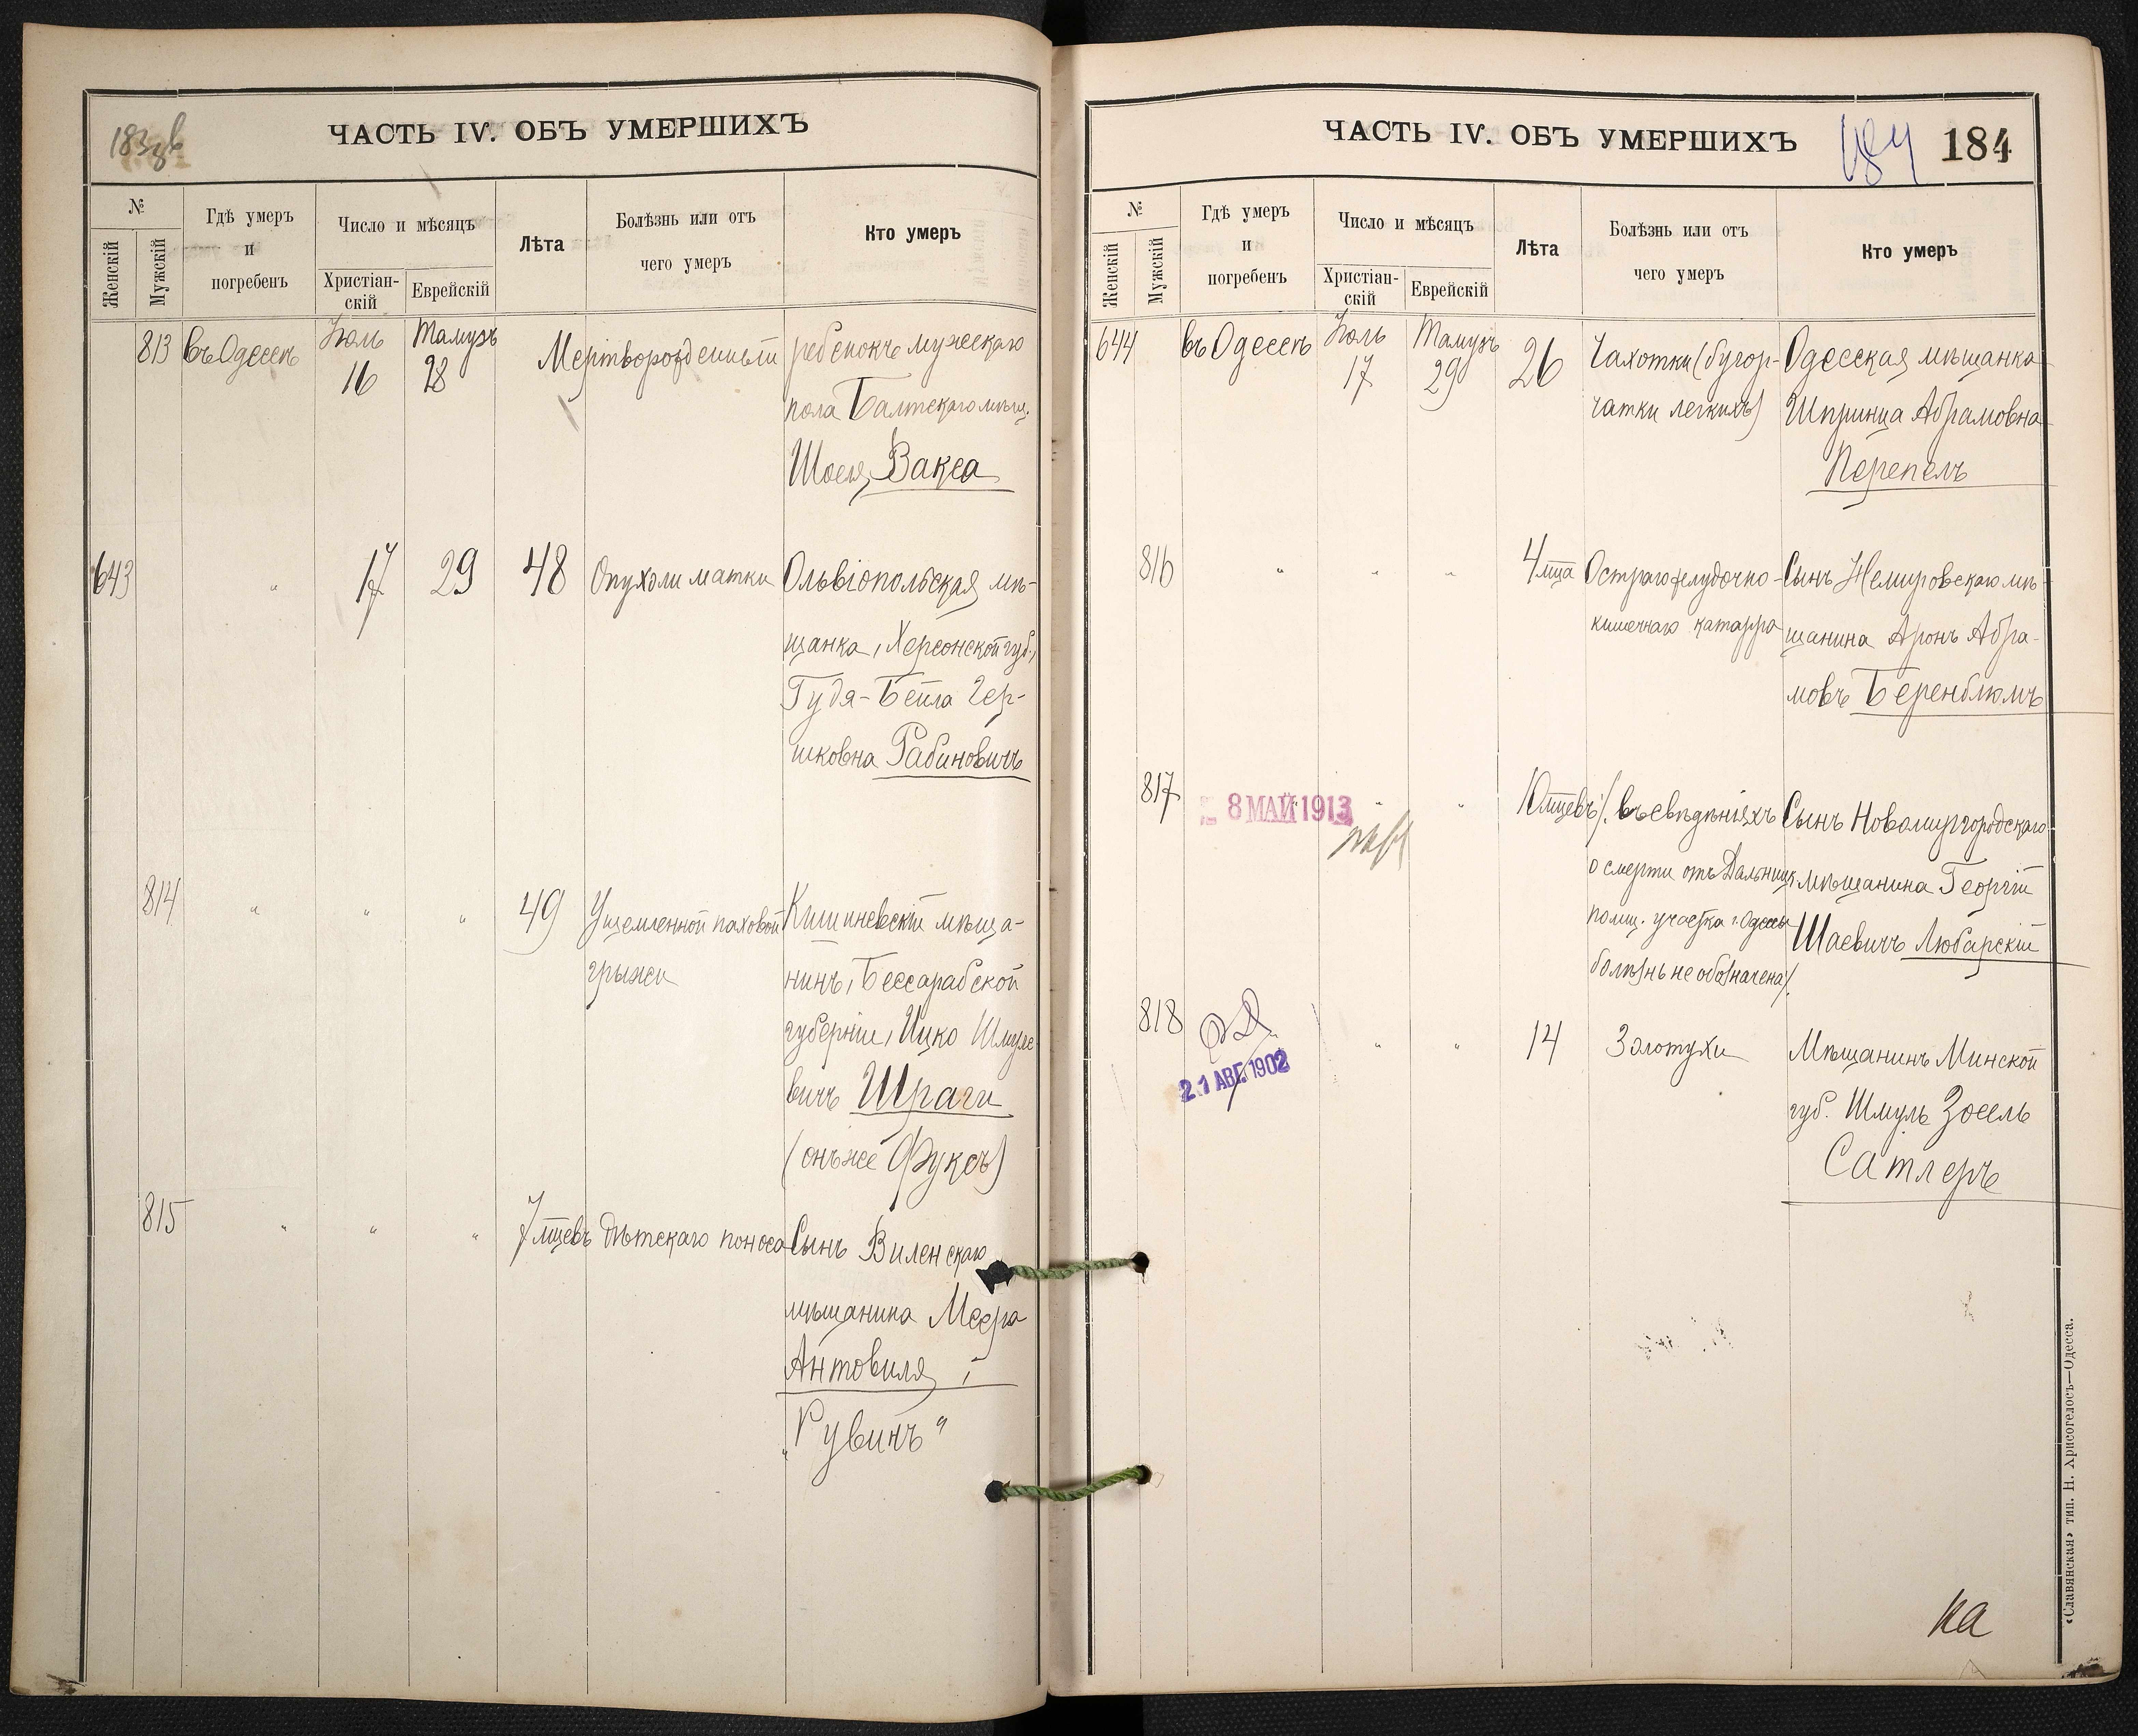 183 об
ЧАСТЬ IV. ОБЪ УМЕРШИХЪ
№
Женскій
Мужскій
Гдѣ умеръ
и
погребенъ
Число и мѣсяцъ
Христіан-
скій
Еврейскій
Лѣта
Болѣзнь или отъ
чего умеръ
Кто умеръ
813 въ Одессѣ Іюль 16 Тамузъ 28 Мертворожденный ребенокъ мужескаго
пола Балтскаго мѣщ.
Шоеля Вакса
643 " 17 29 48 Опухоли матки Ольвіопольская мѣ-
щанка, Херсонской губ.,
Гудя-Бейла Гер-
шковна Рабиновичъ
814 " " " 49 Ущемленной паховой Кишиневскій мѣща-
грыжи нинъ, Бессарабской
губерніи, Ицко Шмуле
вичъ Шраги
(онъ же Фуксъ)
815 " " " 7 мцевъ Дѣтскаго поноса Сынъ Виленскаго
мѣщанина Меера
Антовиля,
"Рувинъ"
ЧАСТЬ IV. ОБЪ УМЕРШИХЪ
184 184
№
Женскій
Мужскій
Гдѣ умеръ
и
погребенъ
Число и мѣсяцъ
Христіан-
скій
Еврейскій
Лѣта
Болѣзнь или отъ
чего умеръ
Кто умеръ
644 въ Одессѣ Іюль 17 Тамузъ 29 26 Чахотки (бугор- Одесская мѣщанка
чатки легкихъ) Шпринца Абрамовна
Перепелъ
816 " " " 4 мца Остраго желудочно- Сынъ Немировскаго мѣ-
кишечнаго катарра щанина Аронъ Абра-
мовъ Беренблюмъ
817 8 МАЙ 1913 " " 10 мцевъ /въ свѣдѣніяхъ Сынъ Новомиргородскаго
о смерти отъ Дальниц. мѣщанина Георгій
полиц. участка г. Одессы Шаевичъ Любарскій
болѣзнь не обозначена/.
818 " " 14 Золотухи Мѣщанинъ Минской
21 АВГ. 1902
губ. Шмуль Зосель
Сатлеръ
на
«Славянская» тип. Н. Хрисогелосъ—Одесса.